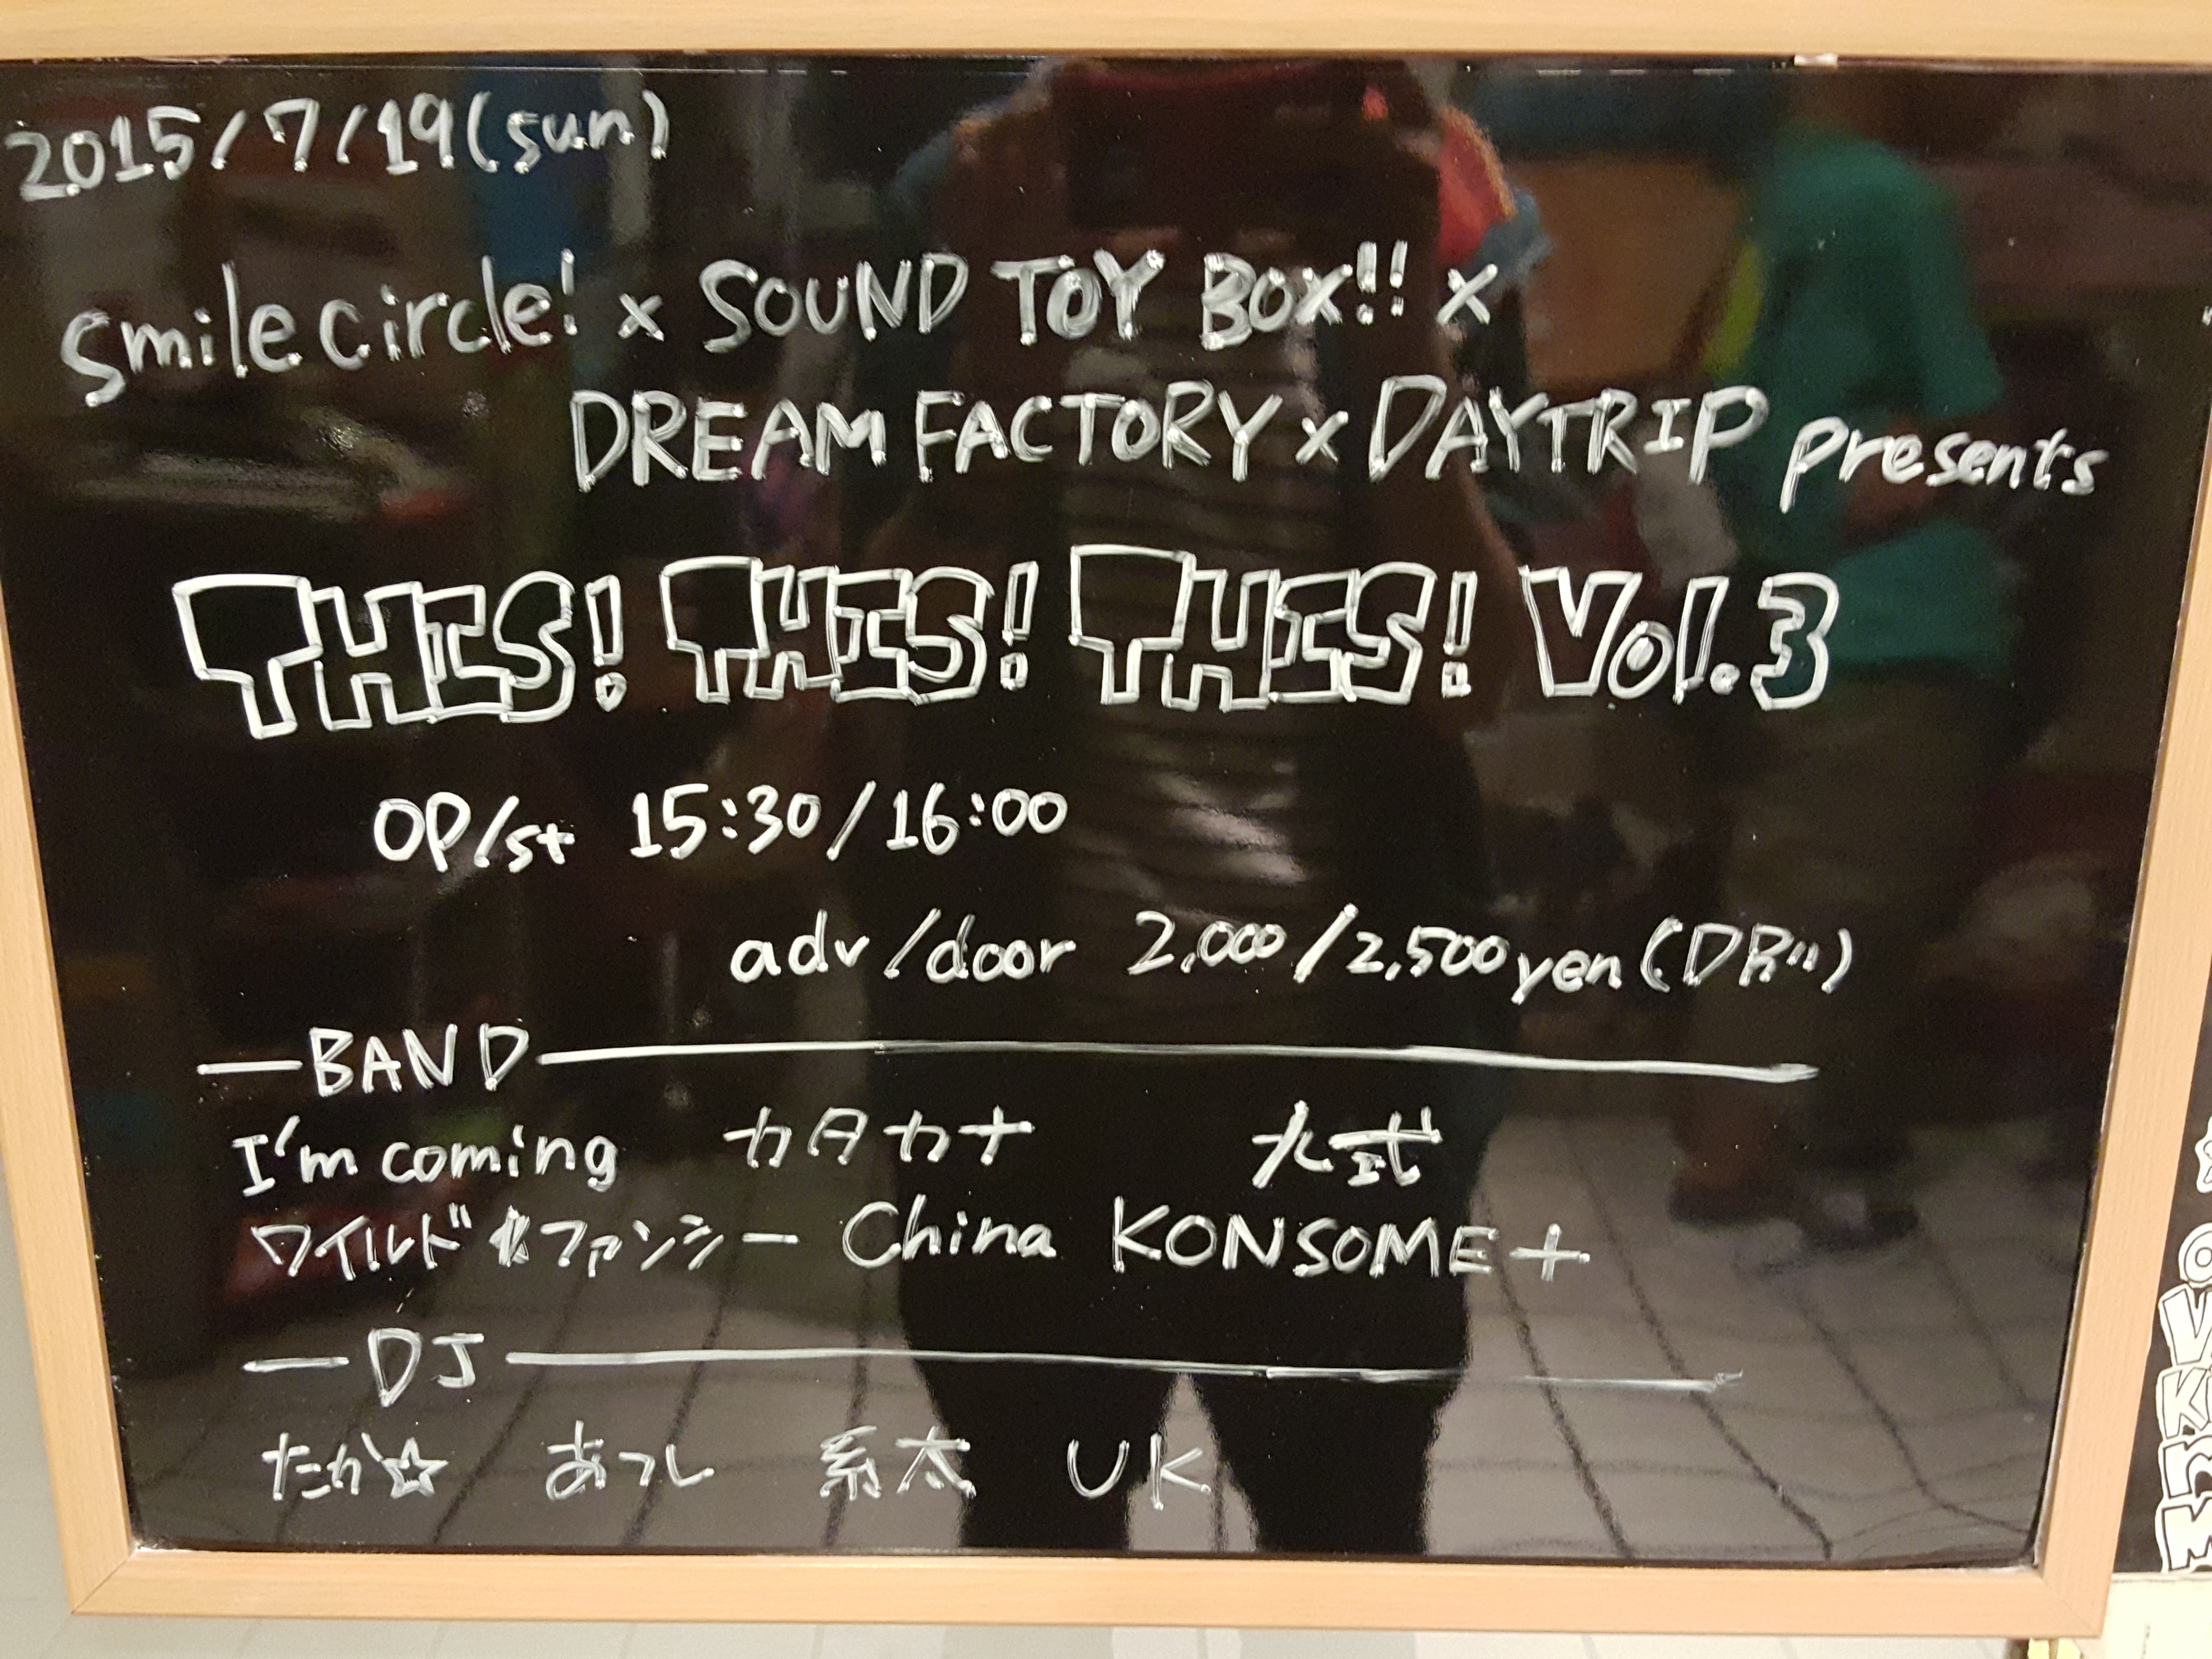 2015/7/19(sun)
smile circle! × SOUND TOY BOX!! ×
DREAM FACTORY × DAYTRIP presents
THIS! THIS! THIS! Vol.3
OP/st 15:30/16:00
adv/door 2,000/2,500yen(DR別)
—BAND—
I'm coming カタカナ 大弐
ワイルド ファンシー China KONSOME+
—DJ—
たか☆ あつし 系太 UK